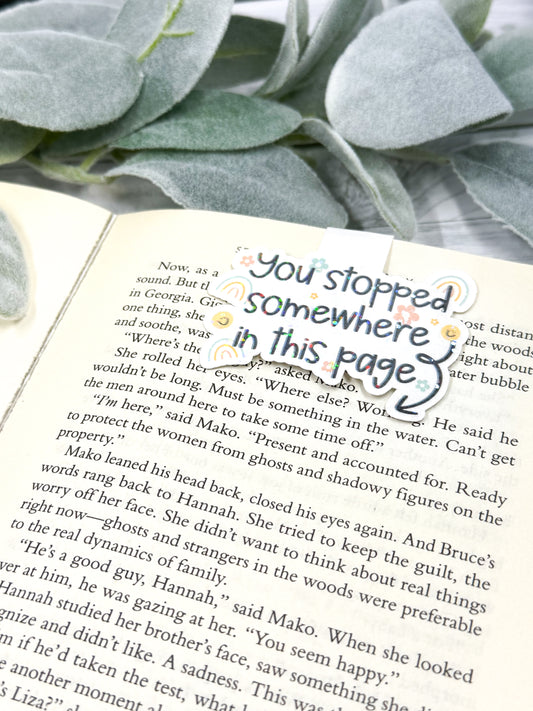 You stopped
somewhere
in this page
Now, as a
sound. But ost distan
in Georgia. the woods
one thing, she right about
and soothe, was ater bubble
"Where's asked Mako.
She rolled her eyes. "Where else? He said he
wouldn't be long. Must be something in the water. Can't get
the men around here to take some time off."
"I'm here," said Mako. "Present and accounted for. Ready
to protect the women from ghosts and shadowy figures on the
property."
Mako leaned his head back, closed his eyes again. And Bruce's
words rang back to Hannah. She tried to keep the guilt, the
worry off her face. She didn't want to think about real things
right now—ghosts and strangers in the woods were preferable
to the real dynamics of family.
"He's a good guy, Hannah," said Mako. When she looked
ver at him, he was gazing at her. "You seem happy."
Hannah studied her brother's face, saw something she
gnize and didn't like. A sadness. This was the
m if he'd taken the test, what
e another moment
's Liza?"